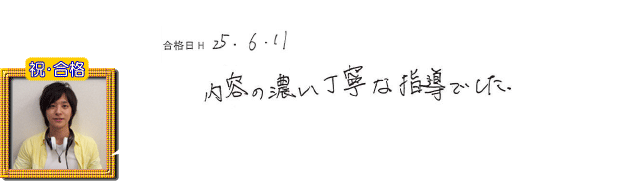 合格日 H 25.6.11
祝・合格
内容の濃い丁寧な指導でした。